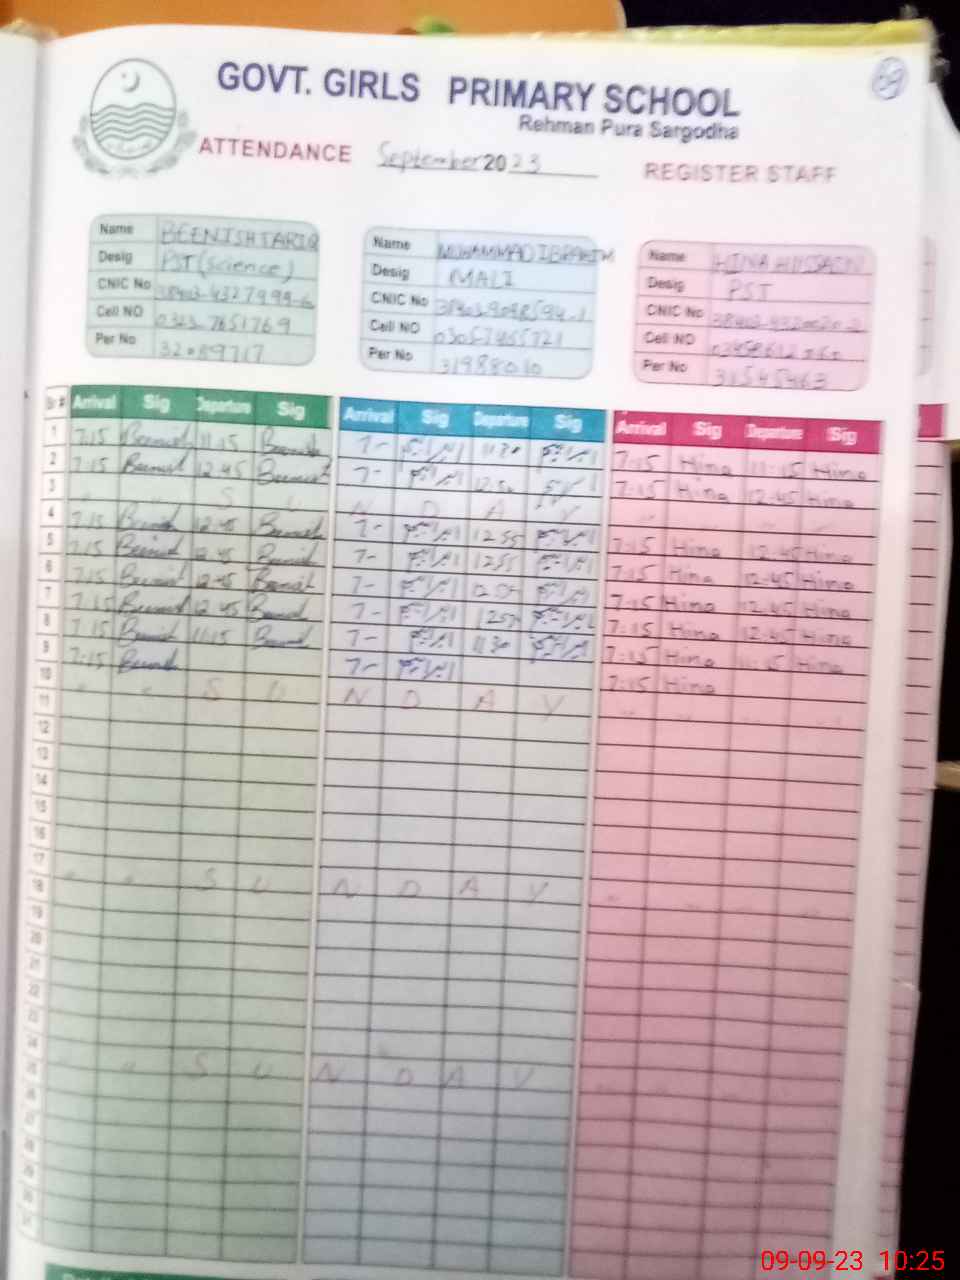 69
GOVT. GIRLS PRIMARY SCHOOL
Rehman Pura Sargodha
ATTENDANCE September 2023 REGISTER STAFF
Name BEENISH TARIQ
Desig PST (science)
CNIC No
Cell NO 0323-7651769
Per No
Name MUHAMMAD IBRAHIM
Desig MALI
CNIC No
Cell NO
Per No 31988010
Name HINA HUSSAIN
Desig PST
CNIC No
Cell NO
Per No 31545463
Sr # Arrival Sig Departure Sig Arrival Sig Departure Sig Arrival Sig Departure Sig
1 7:15 Beenish 11:15 Beenish 7- ابراہیم 1130 ابراہیم 7:15 Hina 11:15 Hina
2 7:15 Beenish 12:45 Beenish 7- ابراہیم 12:50 ابراہیم 7:15 Hina 12:45 Hina
3 " " S U N D A Y
4 7:15 Beenish 12:45 Beenish 7- ابراہیم 1255 ابراہیم 7:15 Hina 12:45 Hina
5 7:15 Beenish 12:45 Beenish 7- ابراہیم 1255 ابراہیم 7:15 Hina 12:45 Hina
6 7:15 Beenish 12:45 Beenish 7- ابراہیم ابراہیم 7:15 Hina 12:45 Hina
7 7:15 Beenish 12:45 Beenish 7- ابراہیم ابراہیم 7:15 Hina 12:45 Hina
8 7:15 Beenish 11:15 Beenish 7- ابراہیم 1130 ابراہیم 7:15 Hina 11:15 Hina
9 7:15 Beenish 7- ابراہیم 7:15 Hina
10 " " S U N D A Y
11
12
13
14
15
16
17 " " S U N D A Y
18
19
20
21
22
23
24 " S U N D A Y
25
26
27
28
29
30
31
09-09-23 10:25